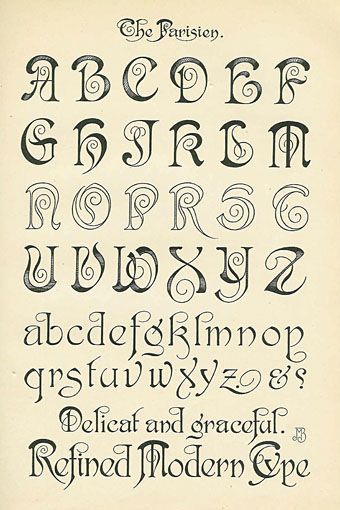 The Parisien.
A B C D E F
G H J K L M
N O P R S T
U V W X Y Z
abcdefgklmnop
qrstuvwxyz. &
Delicat and graceful.
Refined Modern Type